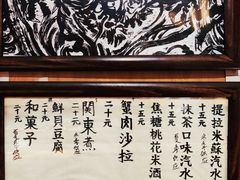 提拉米蘇汽水
十五元
抹茶口味汽水
十五元
焦糖桃花米酒
十五元
蟹肉沙拉
二十元
関東煮
二十元
鮮貝豆腐
二十元
和菓子
二十元